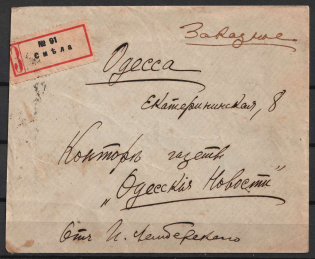 Заказное
№ 91
Смѣла
Одесса
Екатерининская, 8
Контора газеты
„Одесскія Новости"
Отъ И.